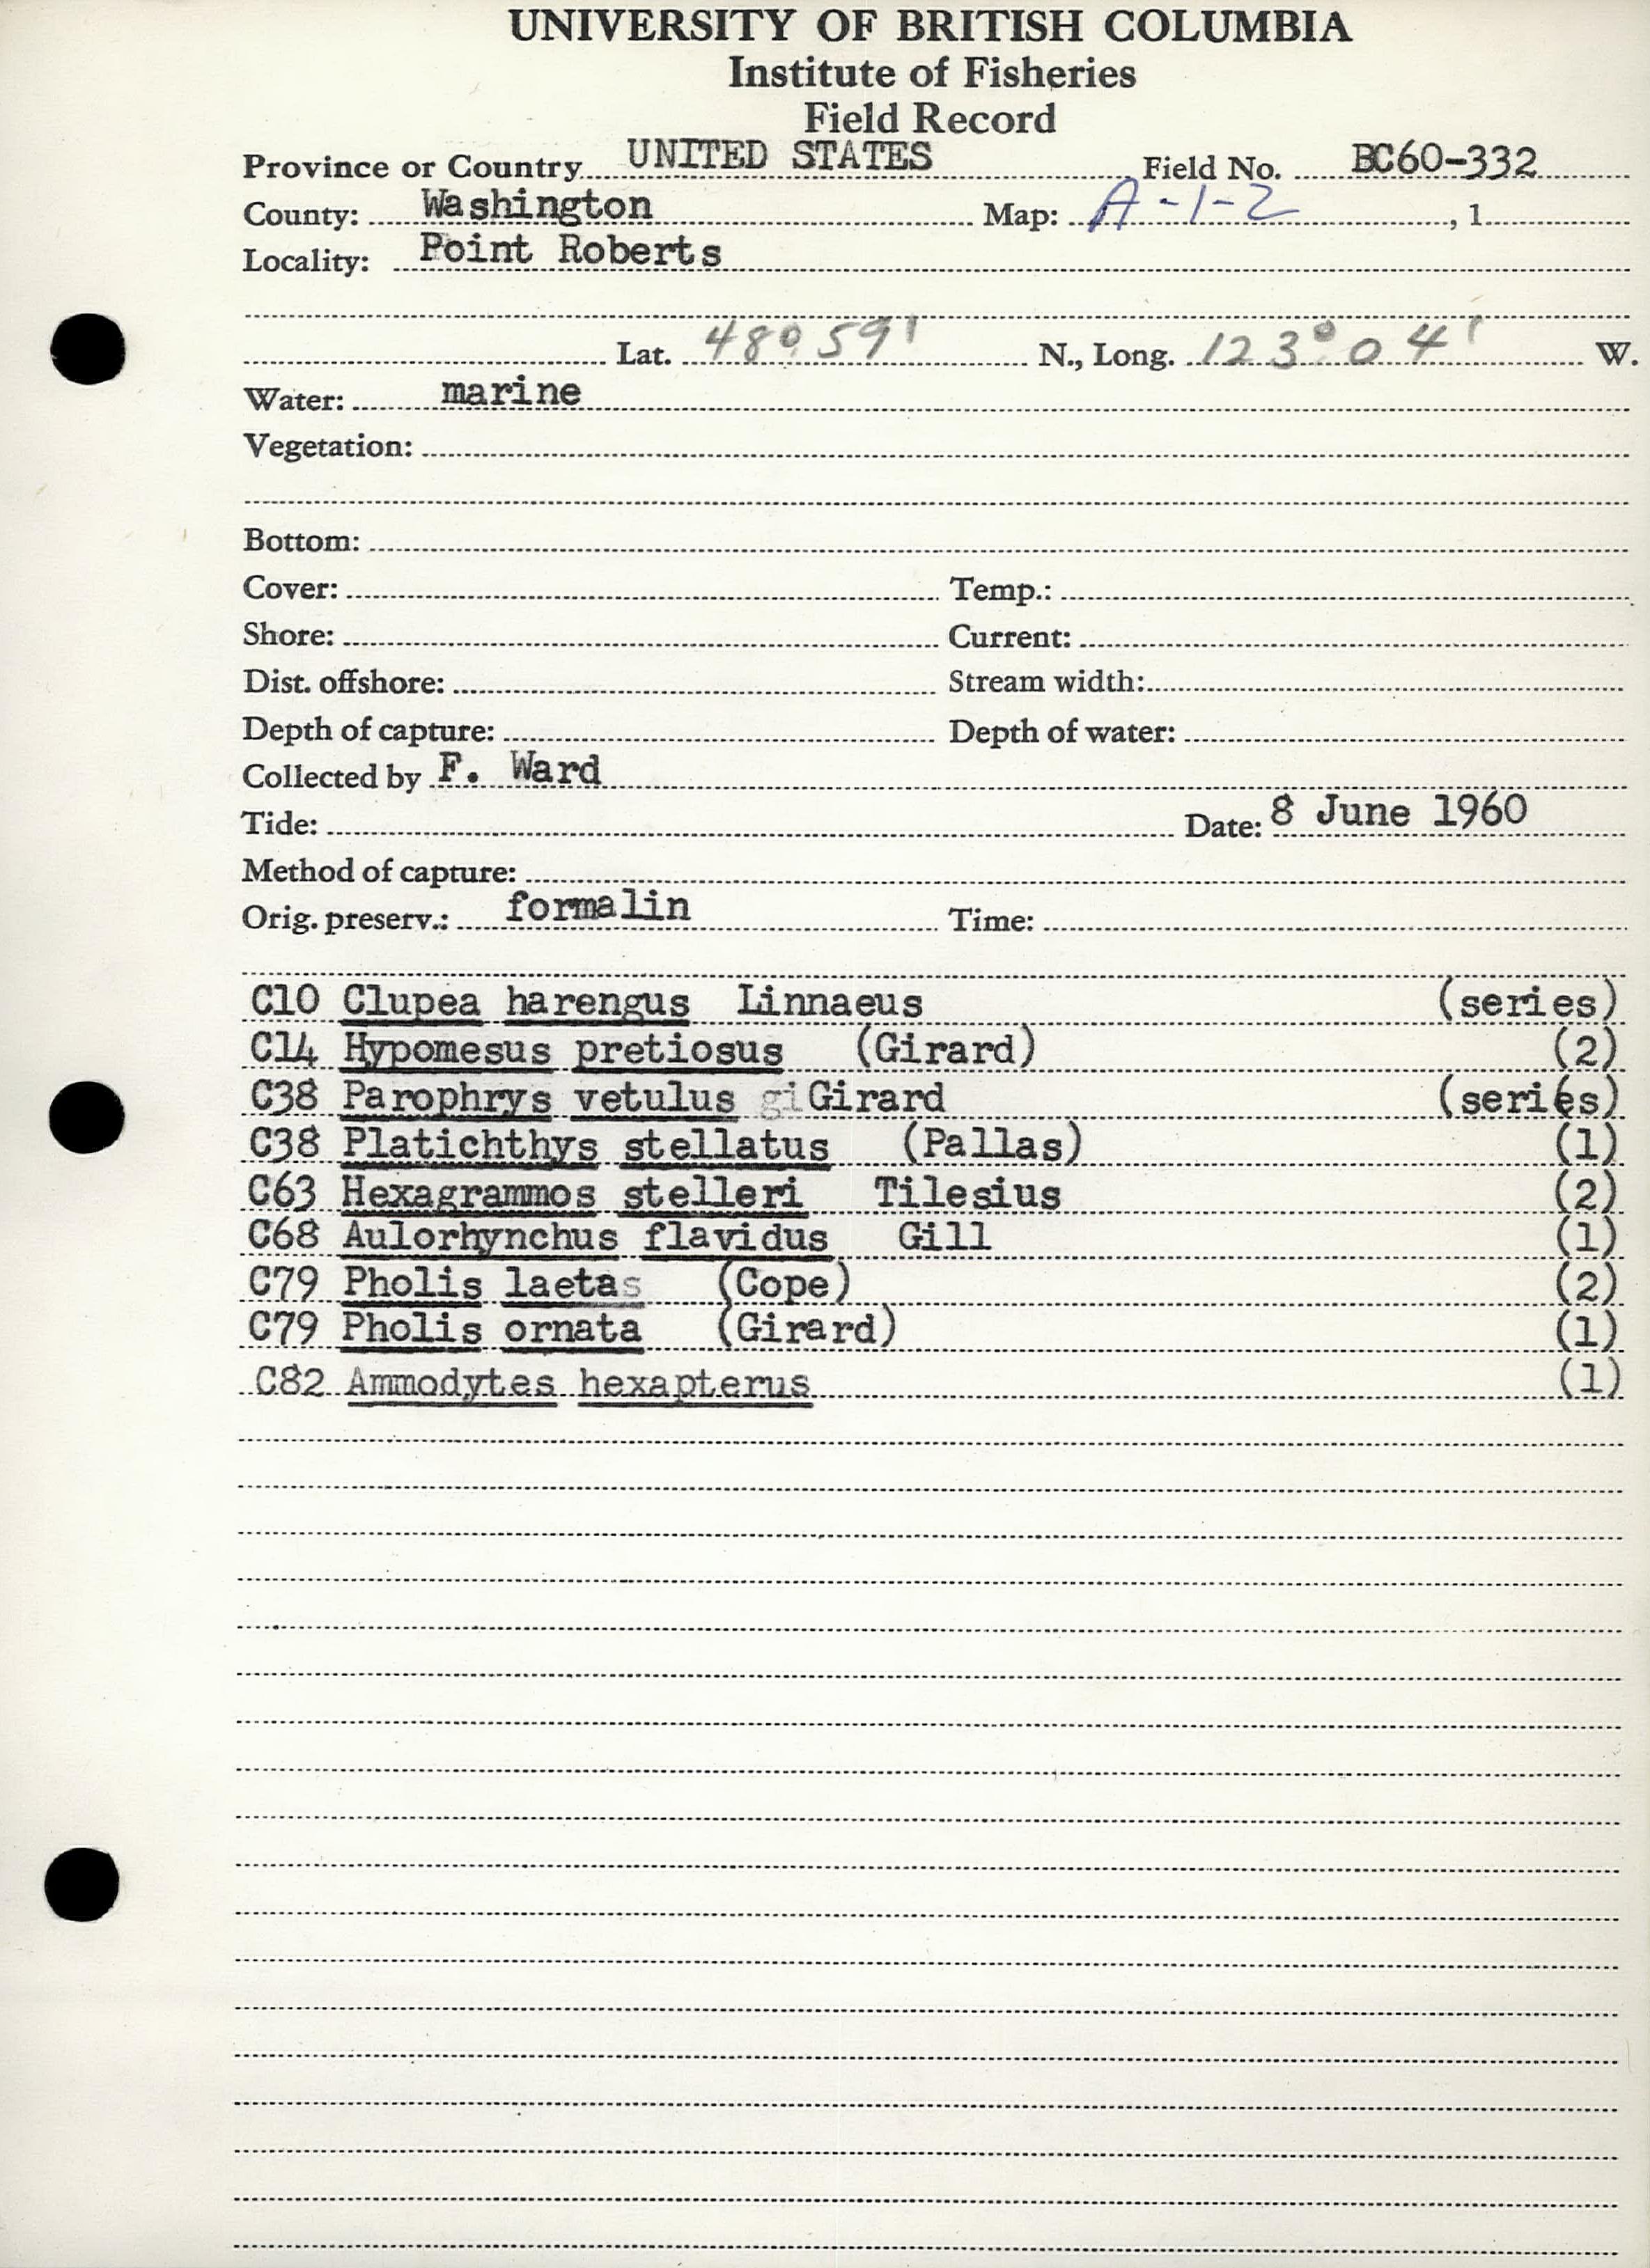 UNIVERSITY OF BRITISH COLUMBIA
Institute of Fisheries
Field Record
Province or Country UNITED STATES Field No. BC60-332
County: Washington Map: A-1-2 , 1
Locality: Point Roberts
Lat. 48° 59' N., Long. 123° 04' W.
Water: marine
Vegetation:
Bottom:
Cover: Temp.:
Shore: Current:
Dist. offshore: Stream width:
Depth of capture: Depth of water:
Collected by F. Ward
Tide: Date: 8 June 1960
Method of capture:
Orig. preserv.: formalin Time:
C10 Clupea harengus Linnaeus (series)
C14 Hypomesus pretiosus (Girard) (2)
C38 Parophrys vetulus giGirard (series)
C38 Platichthys stellatus (Pallas) (1)
C63 Hexagrammos stelleri Tilesius (2)
C68 Aulorhynchus flavidus Gill (1)
C79 Pholis laetas (Cope) (2)
C79 Pholis ornata (Girard) (1)
C82 Ammodytes hexapterus (1)